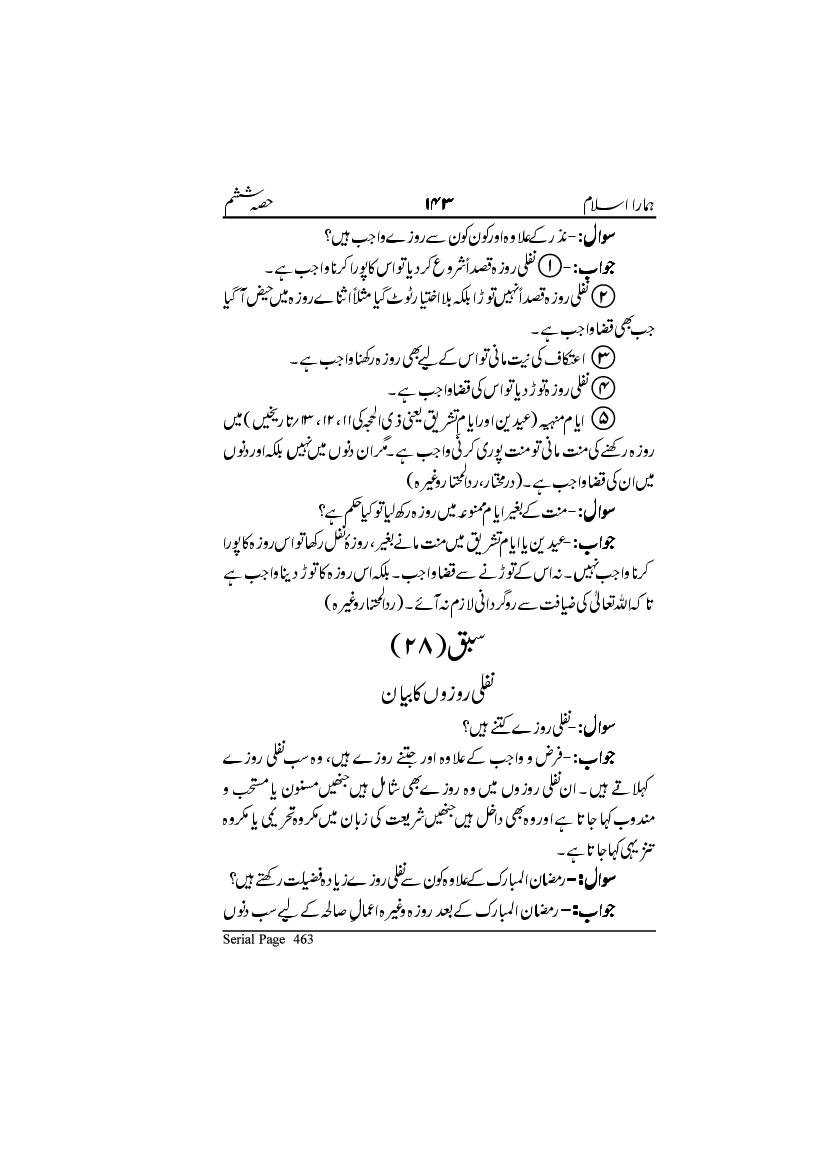 ہمارا اسلام ۱۴۳ حصہ ششم
سوال: -نذر کے علاوہ اور کون کون سے روزے واجب ہیں؟
جواب: -① نفلی روزہ قصداً شروع کر دیا تو اس کا پورا کرنا واجب ہے۔
② نفلی روزہ قصداً نہیں توڑا بلکہ بلا اختیار ٹوٹ گیا مثلاً اثنائے روزہ میں حیض آ گیا
جب بھی قضا واجب ہے۔
③ اعتکاف کی نیت مانی تو اس کے لیے بھی روزہ رکھنا واجب ہے۔
④ نفلی روزہ توڑ دیا تو اس کی قضا واجب ہے۔
⑤ ایام منہیہ (عیدین اور ایام تشریق یعنی ذی الحجہ کی ۱۱، ۱۲، ۱۳/ تاریخیں) میں
روزہ رکھنے کی منت مانی تو منت پوری کرنی واجب ہے۔ مگر ان دنوں میں نہیں بلکہ اور دنوں
میں ان کی قضا واجب ہے۔ (درمختار، ردالمحتار وغیرہ)
سوال: -منت کے بغیر ایام ممنوعہ میں روزہ رکھ لیا تو کیا حکم ہے؟
جواب: -عیدین یا ایام تشریق میں منت مانے بغیر، روزۂ نفل رکھا تو اس روزہ کا پورا
کرنا واجب نہیں۔ نہ اس کے توڑنے سے قضا واجب۔ بلکہ اس روزہ کا توڑ دینا واجب ہے
تاکہ اللہ تعالیٰ کی ضیافت سے روگردانی لازم نہ آئے۔ (ردالمحتار وغیرہ)
سبق (۲۸)
نفلی روزوں کا بیان
سوال: -نفلی روزے کتنے ہیں؟
جواب: -فرض و واجب کے علاوہ اور جتنے روزے ہیں، وہ سب نفلی روزے
کہلاتے ہیں۔ ان نفلی روزوں میں وہ روزے بھی شامل ہیں جنھیں مسنون یا مستحب و
مندوب کہا جاتا ہے اور وہ بھی داخل ہیں جنھیں شریعت کی زبان میں مکروہ تحریمی یا مکروہ
تنزیہی کہا جاتا ہے۔
سوال: – رمضان المبارک کے علاوہ کون سے نفلی روزے زیادہ فضیلت رکھتے ہیں؟
جواب: – رمضان المبارک کے بعد روزہ وغیرہ اعمالِ صالحہ کے لیے سب دنوں
Serial Page 463